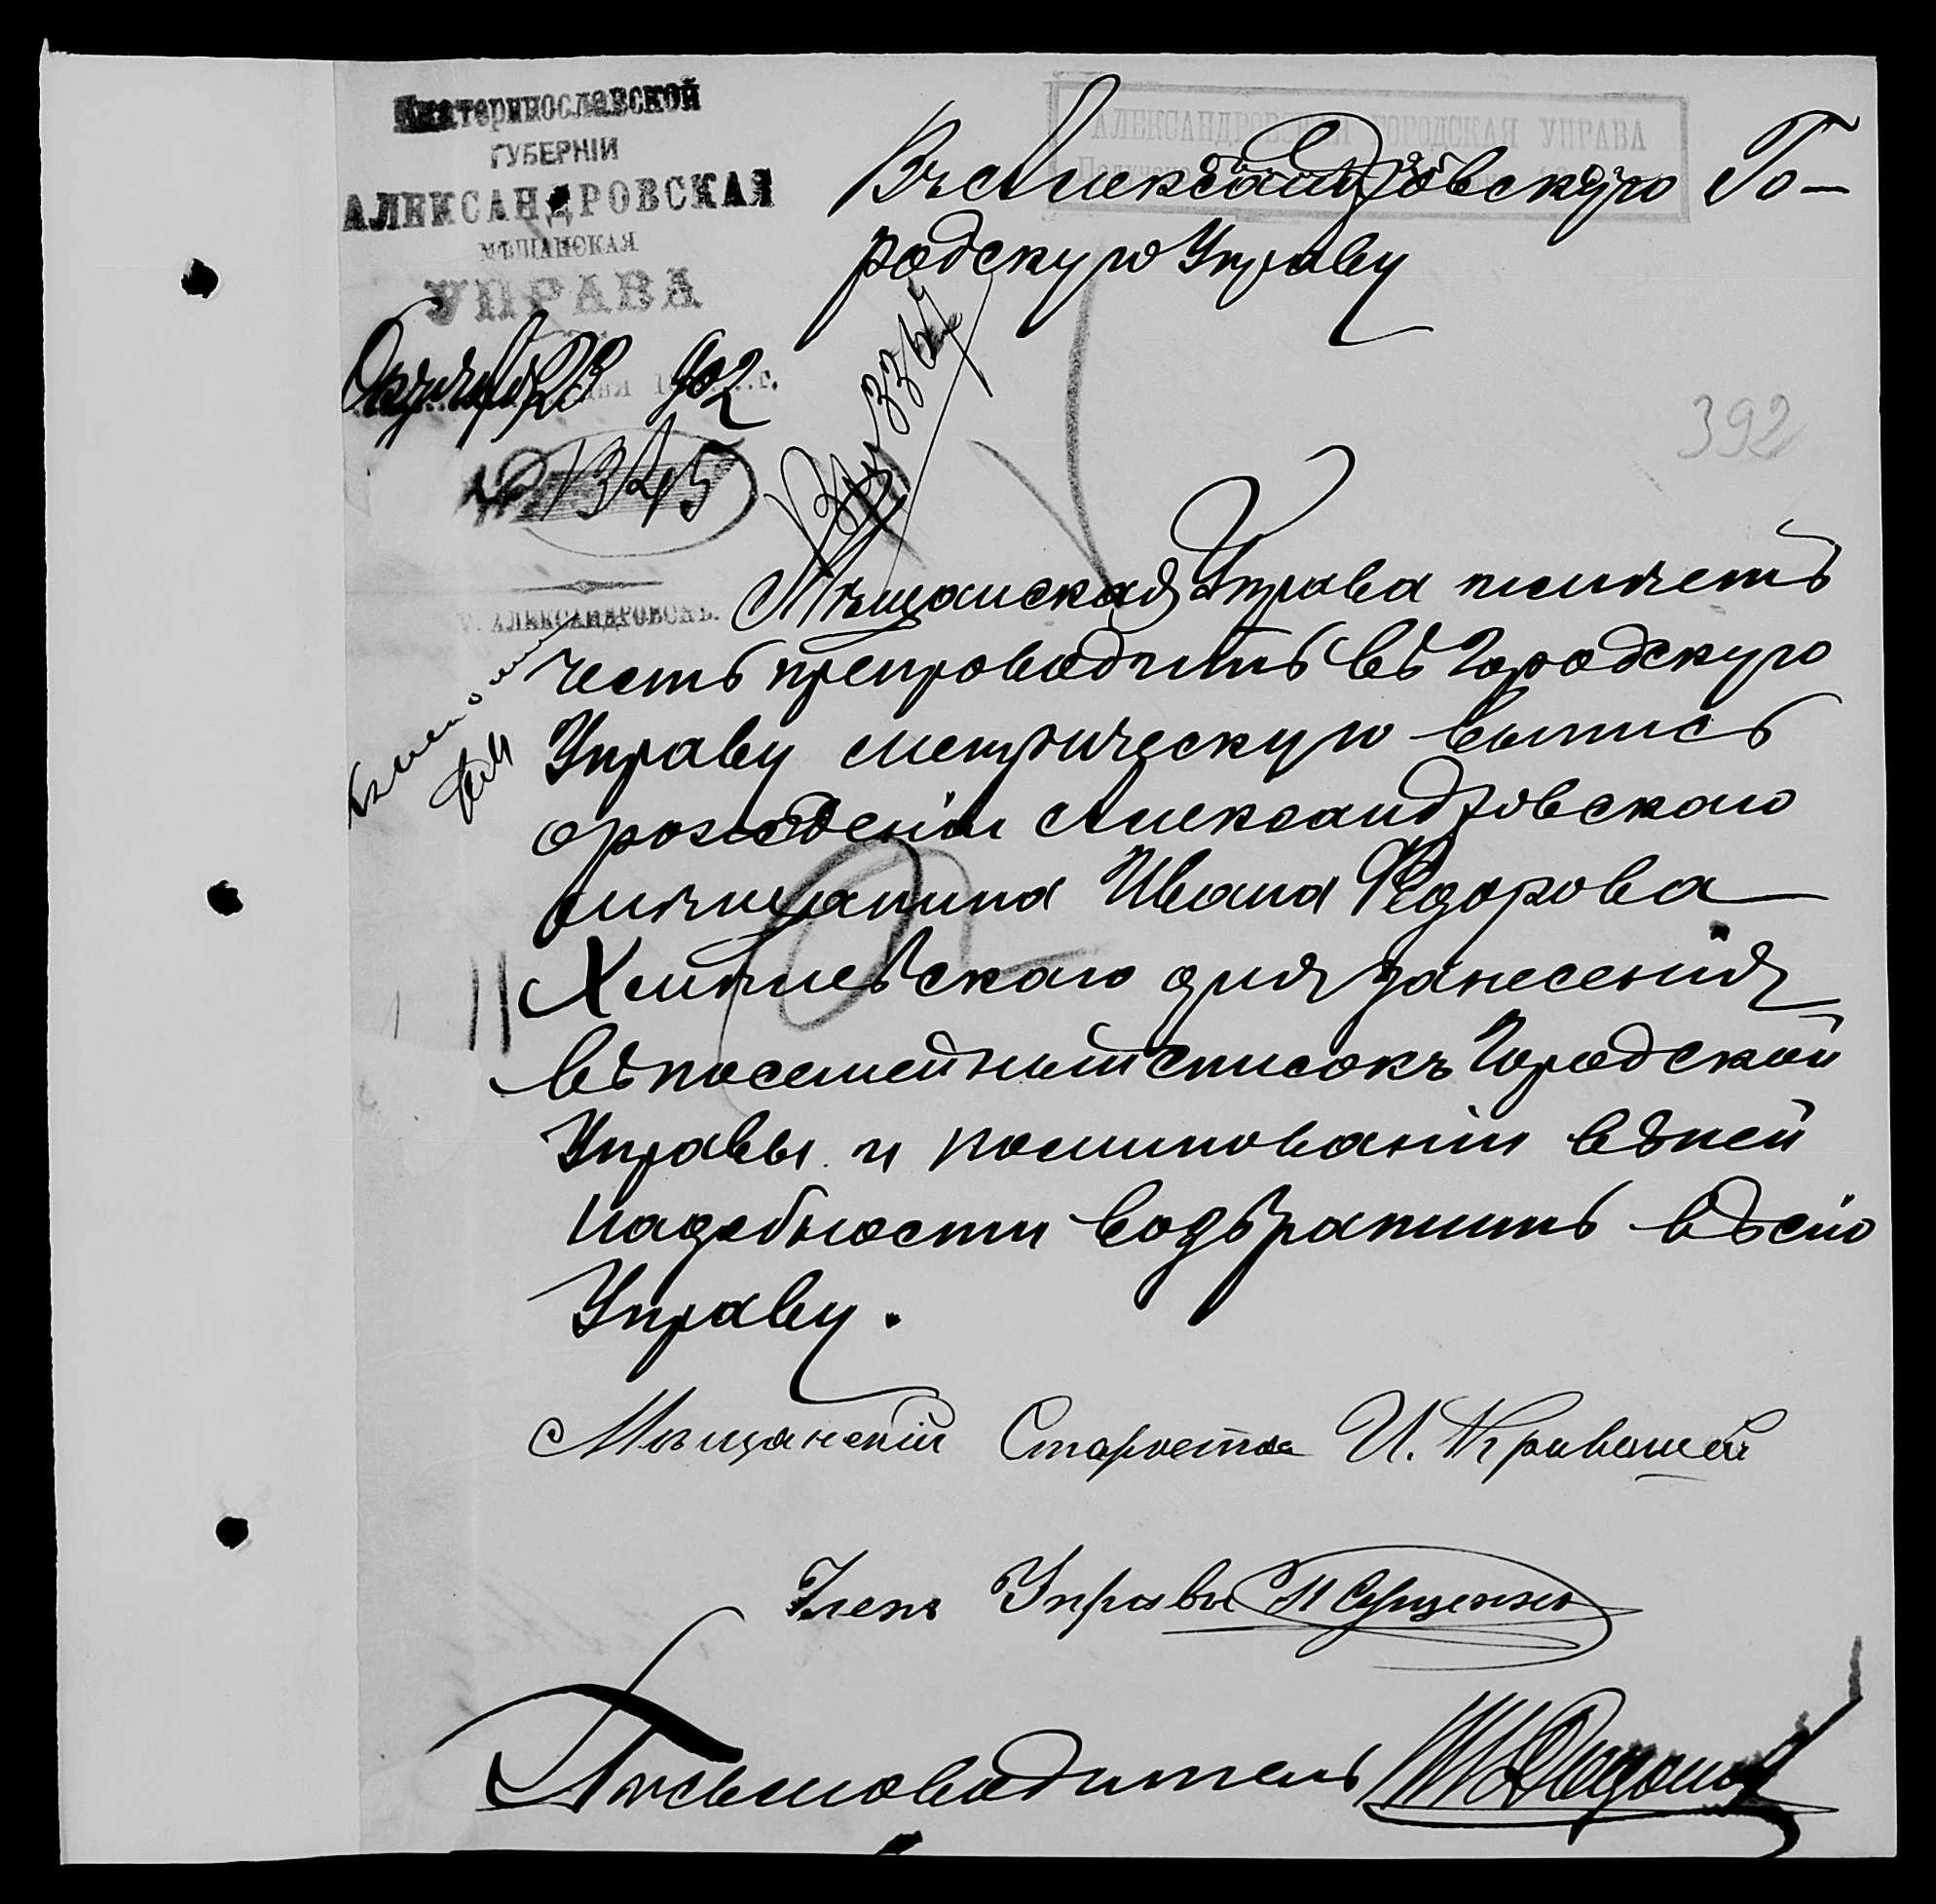 Екатеринославской
ГУБЕРНІИ
АЛЕКСАНДРОВСКАЯ
МѢЩАНСКАЯ
УПРАВА
Октября 23 902
№ 1345
Г. АЛЕКСАНДРОВСКЪ.
АЛЕКСАНДРОВСКАЯ ГОРОДСКАЯ УПРАВА
Въ Александровскую Го-
родскую Управу
392
Мѣщанская Управа имѣетъ
честь препроводить въ Городскую
Управу метрическую выпись
о рожденіи Александровскаго
мѣщанина Ивана Федорова
Хмѣлевскаго для занесенія
въ посемейный списокъ Городской
Управы и поминованіи въ ней
надобности возвратить въ сію
Управу.
Мѣщанскій Староста И.
Членъ Управы
Письмоводитель